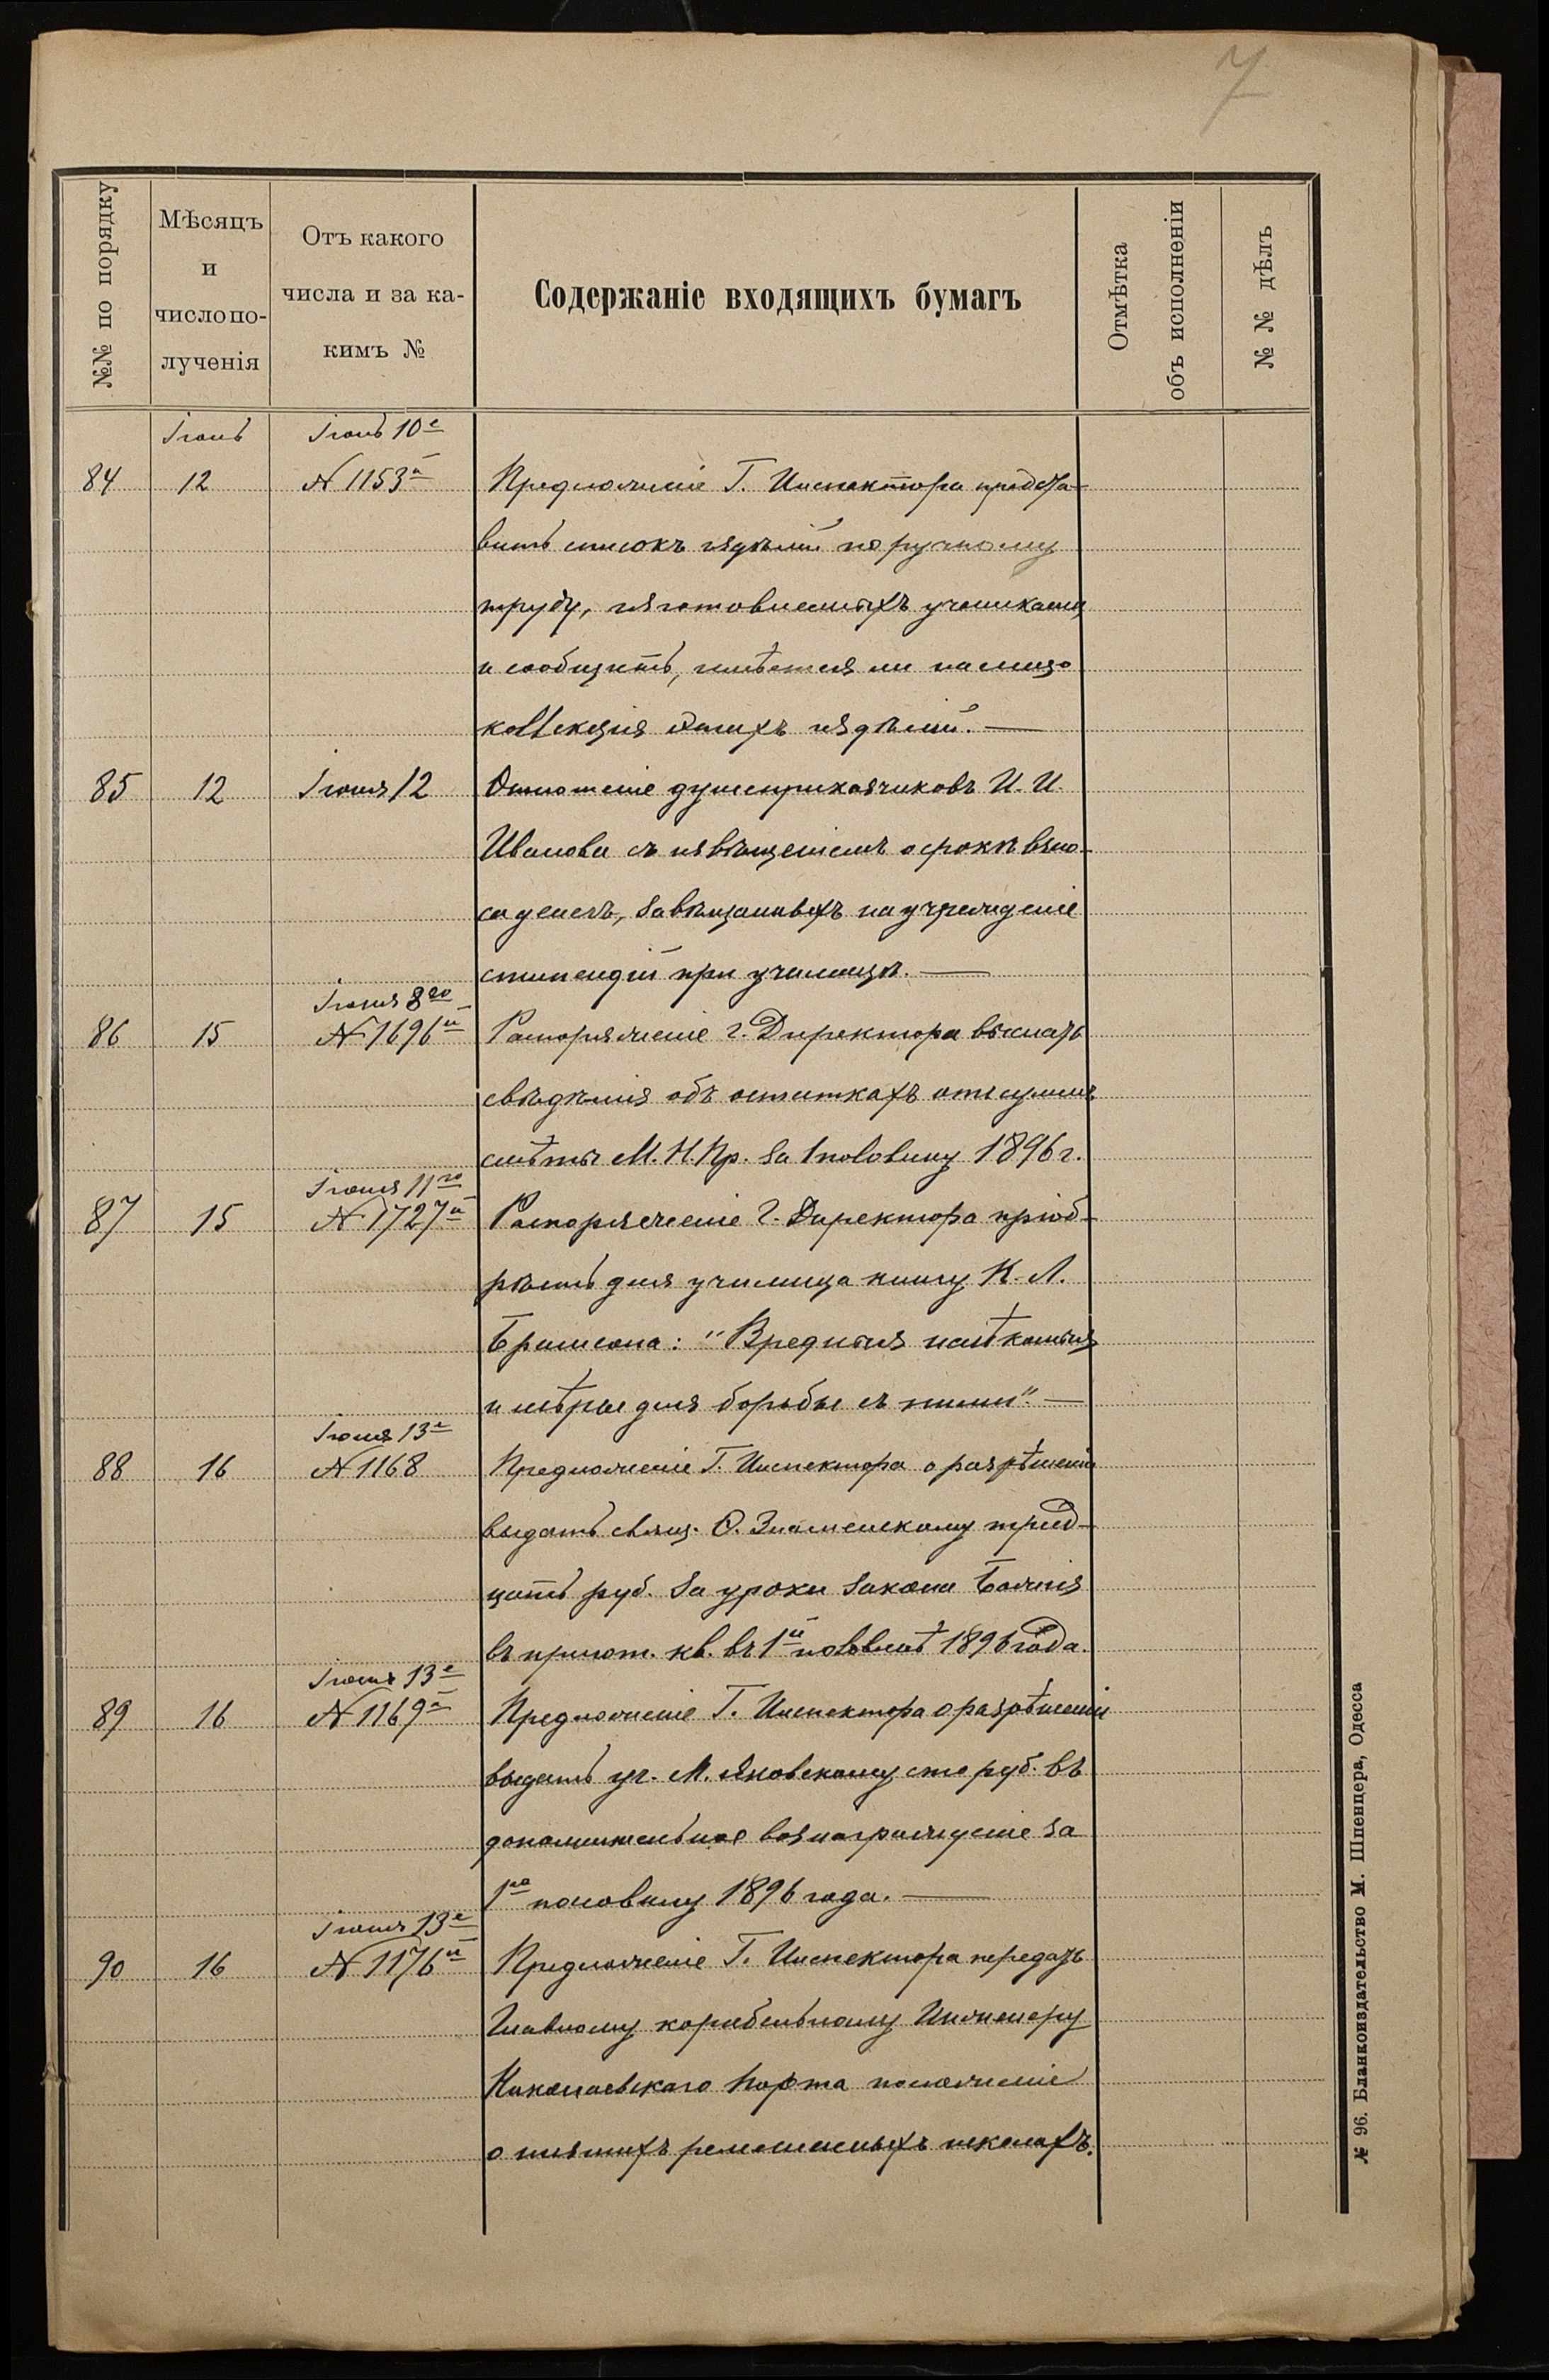 7
№№ по порядку
Мѣсяцъ
и
число по-
лученія
Отъ какого
числа и за ка-
кимъ №
Содержаніе входящихъ бумагъ
Отмѣтка
объ исполненіи
№ № дѣлъ
Іюнь Іюнь 10е
84 12 № 1153й Предложеніе Г. Инспектора предста-
вить списокъ издѣлій по ручному
труду, изготовленныхъ учениками,
и сообщить, имѣется ли на лицо
коллекція этихъ издѣлій. —
85 12 Іюня 12 Отношеніе душеприказчиковъ И. И.
Иванова съ извѣщеніемъ о срокѣ взно-
са денегъ, завѣщанныхъ на учрежденіе
стипендій при училищѣ. —
Іюня 8го
86 15 № 1696й Распоряженіе г. Директора выслать
свѣдѣнія объ остаткахъ отъ суммъ
смѣты М. Н. Пр. за 1 половину 1896 г.
Іюня 11го
87 15 № 1727й Распоряженіе г. Директора пріоб-
рѣсть для училища книгу К. Л.
Брамсона: "Вредныя насѣкомыя
и мѣры для борьбы съ ними". —
Іюня 13е
88 16 № 1168 Предложеніе Г. Инспектора о разрѣшеніи
выдать свящ. Ѳ. Знаменскому трид-
цать руб. за уроки закона Божія
въ пригот. кл. въ 1й половинѣ 1896 года.
Іюня 13е
89 16 № 1169й Предложеніе Г. Инспектора о разрѣшеніи
выдать уч. М. Яновскому сто руб. въ
дополнительное вознагражденіе за
1ю половину 1896 года. —
Іюня 13е
90 16 № 1176й Предложеніе Г. Инспектора передать
Главному корабельному Инженеру
Николаевскаго порта положеніе
о низшихъ ремесленныхъ школахъ.
№ 96. Бланкоиздательство М. Шпенцера, Одесса